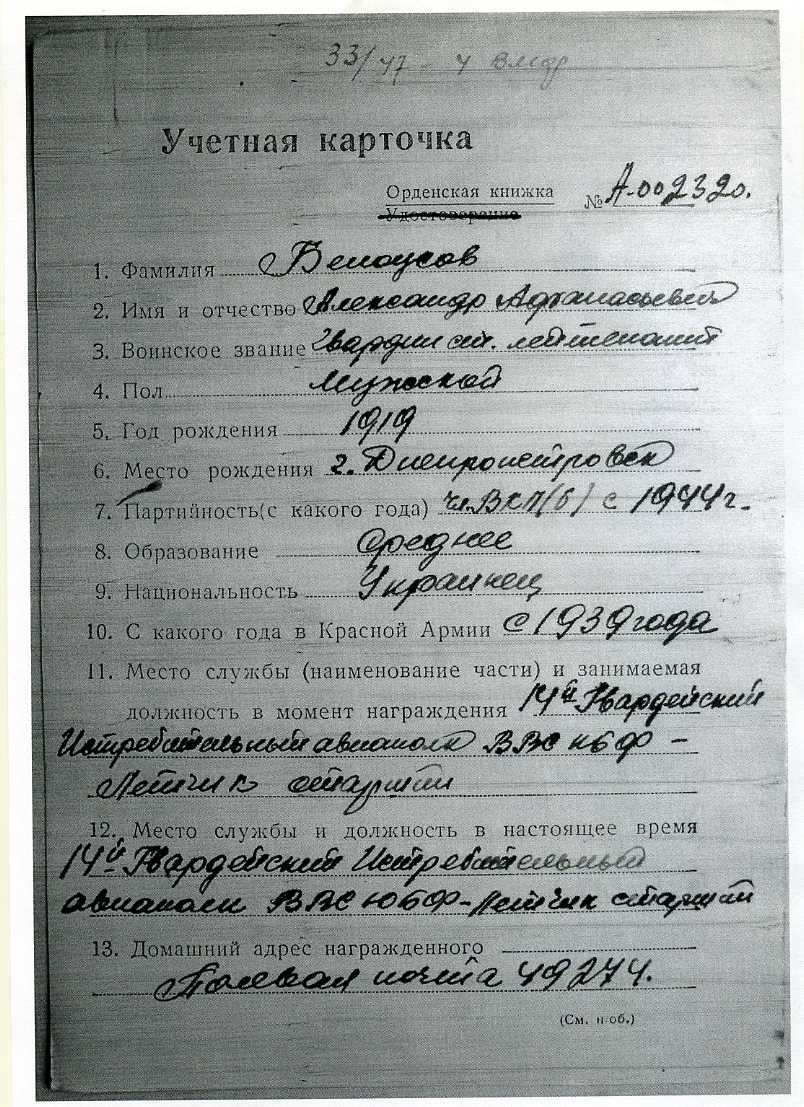 33/47 - 4 ВМОР
Учетная карточка
Орденская книжка № А-002320.
Удостоверение
1. Фамилия Белоусов
2. Имя и отчество Александр Афанасьевич
3. Воинское звание Гвардии ст. лейтенант
4. Пол Мужской
5. Год рождения 1919
6. Место рождения г. Днепропетровск
7. Партийность(с какого года) Чл. ВКП(б) с 1944 г.
8. Образование Среднее
9. Национальность Украинец
10. С какого года в Красной Армии с 1939 года
11. Место службы (наименование части) и занимаемая
должность в момент награждения 14й Гвардейский
Истребительный авиаполк ВВС КБФ -
Летчик старший
12. Место службы и должность в настоящее время
14й Гвардейский Истребительный
авиаполк ВВС ЮБФ - Летчик старший
13. Домашний адрес награжденного
Полевая почта 49274.
(См. н об.)